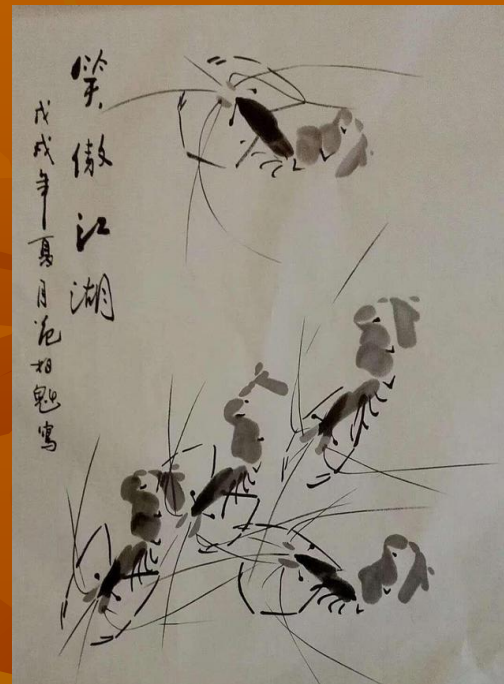 笑傲江湖
戊戌年夏月范相魁写